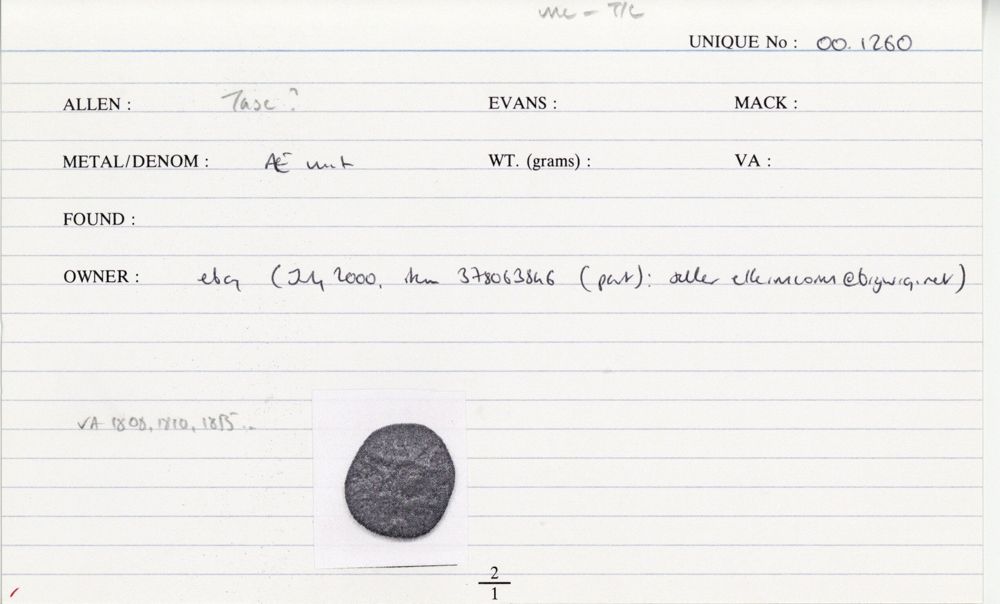 UNIQUE No : 00.1260
ALLEN : Tasc? EVANS : MACK :
METAL/DENOM : Æ unit WT. (grams) : VA :
FOUND :
OWNER : ebay (July 2000, item 378063846 (part): seller @bigwig.net)
VA 1808, 1810,
2
1